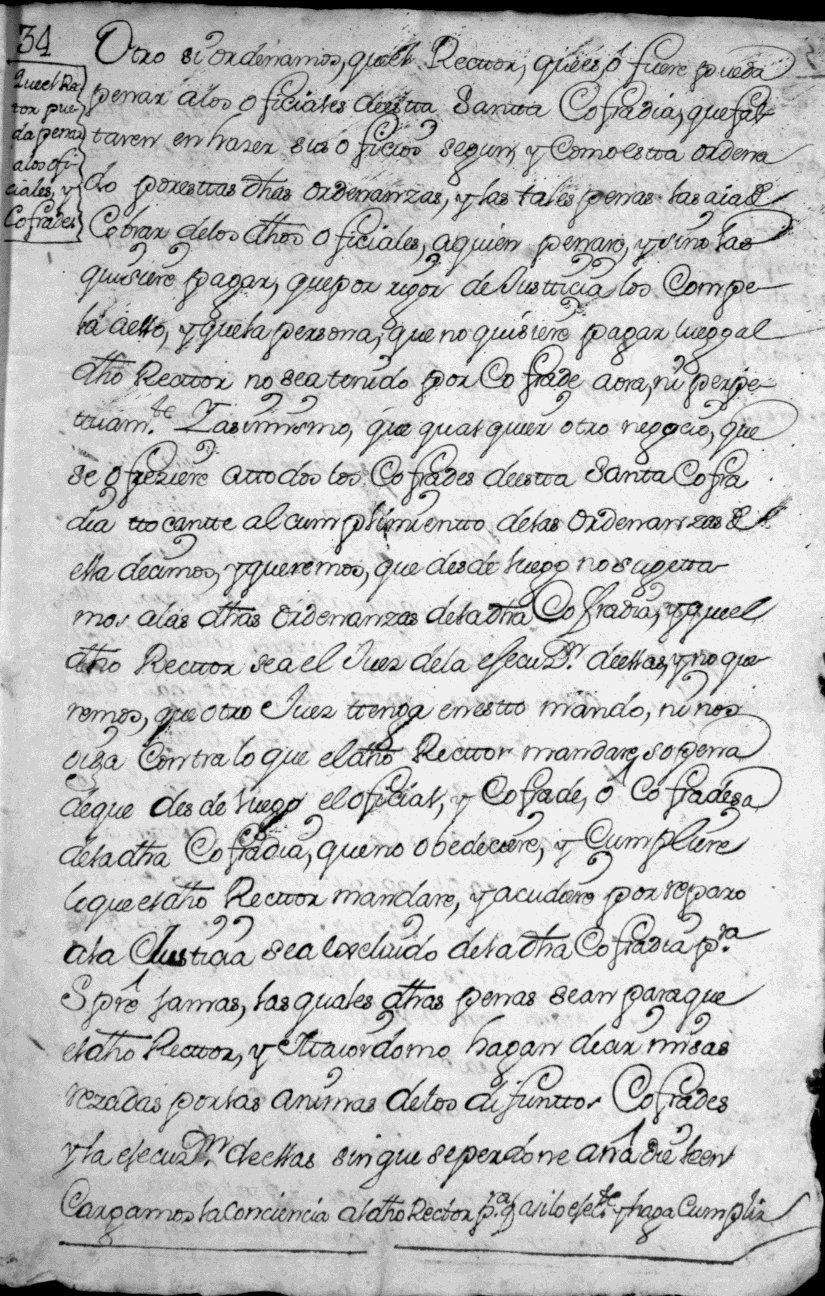 34
Que el Rec
tor pue
da penar
a los ofi
ciales, y
Cofrades
Otro si ordenamos, quel Recttor, que es, ó fuere pueda
penar á los oficiales deestta Santta Cofradia, que fal
taren en hazer sus oficios segun, y como estta ordena
do por esttas dhas ordenanzas, y las tales penas las aia de
Cobrar de los dhos oficiales, aquien penare, y si no las
quisiere pagar, que por rigor de Justticia los Compe
la aello, y que la persona, que no quisiere pagar luego al
dho Recttor no sea tenido por Cofrade aora, ni perpe
ttuamte. Y asimismo, que qualquier otro negocio, que
se ofreziere a ttodos los Cofrades deestta Santta Cofra
dia ttocantte al cumplimientto de las ordenanzas de
ella decimos, y queremos, que desde luego nos sugetta
mos alas dhas ordenanzas dela dha Cofradia, y que el
dho Recttor sea el Juez dela efecuzon. de ellas, y no que
remos, que otro Juez ttenga en estto mando, ni nos
oiga Contra lo que el dho Recttor mandare, so pena
de que desde luego el oficial, y Cofrade, ó Cofradesa
dela dha Cofradia, que no obedeciere, y Cumpliere
lo que el dho Recttor mandare, y acudiere por reparo
ala Justicia sea excluido dela dha Cofradia pra.
Spre Jamas, las quales dhas penas sean para que
el dho Recttor, y Maiordomo hagan decir misas
rezadas por las animas de los difunttos Cofrades
y la efecuzon. de ellas sin que se perdone a nadie le en
Cargamos la Conciencia al dho Recttor pa. q asi lo efecte. y haga Cumplir